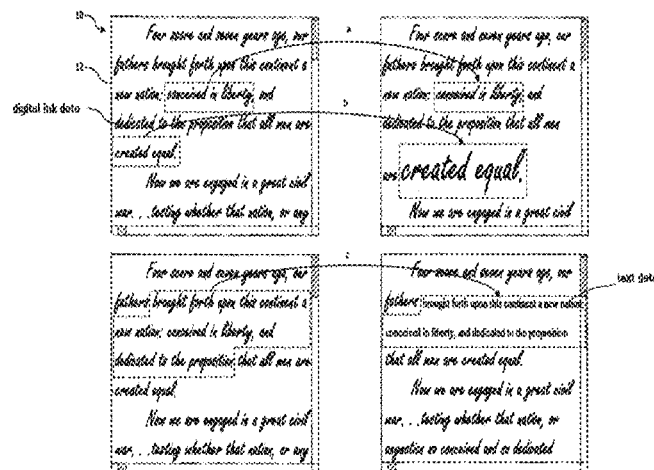 10
12
digital ink data
Four score and seven years ago, our
fathers brought forth upon this continent a
new nation: conceived in liberty, and
dedicated to the proposition that all men are
created equal.
Now we are engaged in a great civil
war. . .testing whether that nation, or any
a
b
Four score and seven years ago, our
fathers brought forth upon this continent a
new nation: conceived in liberty, and
dedicated to the proposition that all men
are created equal.
Now we are engaged in a great civil
Four score and seven years ago, our
fathers brought forth upon this continent a
new nation: conceived in liberty, and
dedicated to the proposition that all men are
created equal.
Now we are engaged in a great civil
war. . .testing whether that nation, or any
c
text data
Four score and seven years ago, our
fathers brought forth upon this continent a new nation:
conceived in liberty, and dedicated to the proposition
that all men are created equal.
Now we are engaged in a great civil
war. . .testing whether that nation, or
so conceived and so dedicated